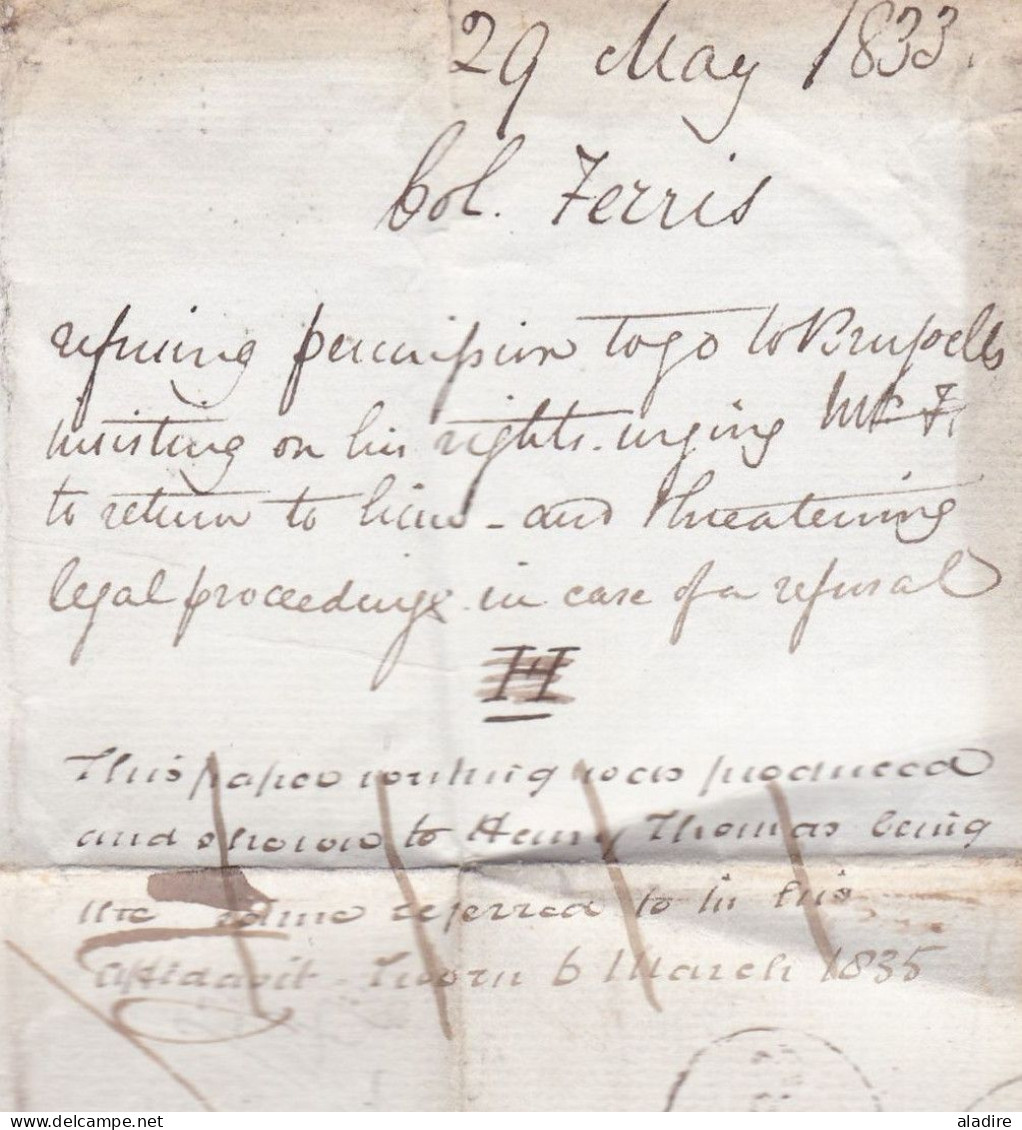 29 May 1833.
Col. Ferris
refusing permission to go to Brussells
insisting on his rights. urging Mr F.
to return to him - and threatening
legal proceedings in case of a refusal
H
This paper writing was produced
and shown to Henry Thomas being
the same referred to in his
affidavit - Sworn 6 March 1835
aladire